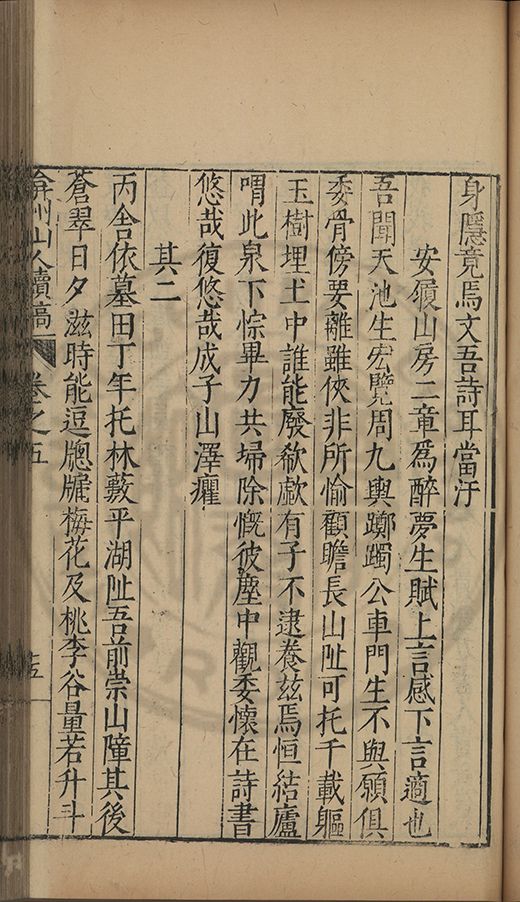 身隱竟焉文吾詩耳當汙
安傾山房二章爲醉夢生賦上言感下言適也
吾聞天池生宏覽周九輿躑躅公車門生不與願俱
委骨傍要離雖俠非所愉顧瞻長山趾可托千載軀
玉樹埋土中誰能廢欷歔有子不逮養茲焉恒結廬
喟此泉下悰畢力共埽除慨彼塵中觀委懷在詩書
悠哉復悠哉成子山澤癯
其二
丙舍依墓田丁年托林藪平湖趾吾前崇山障其後
蒼翠日夕滋時能逗牕牖梅花及桃李谷量若升斗
弇州山人續稿 卷之五